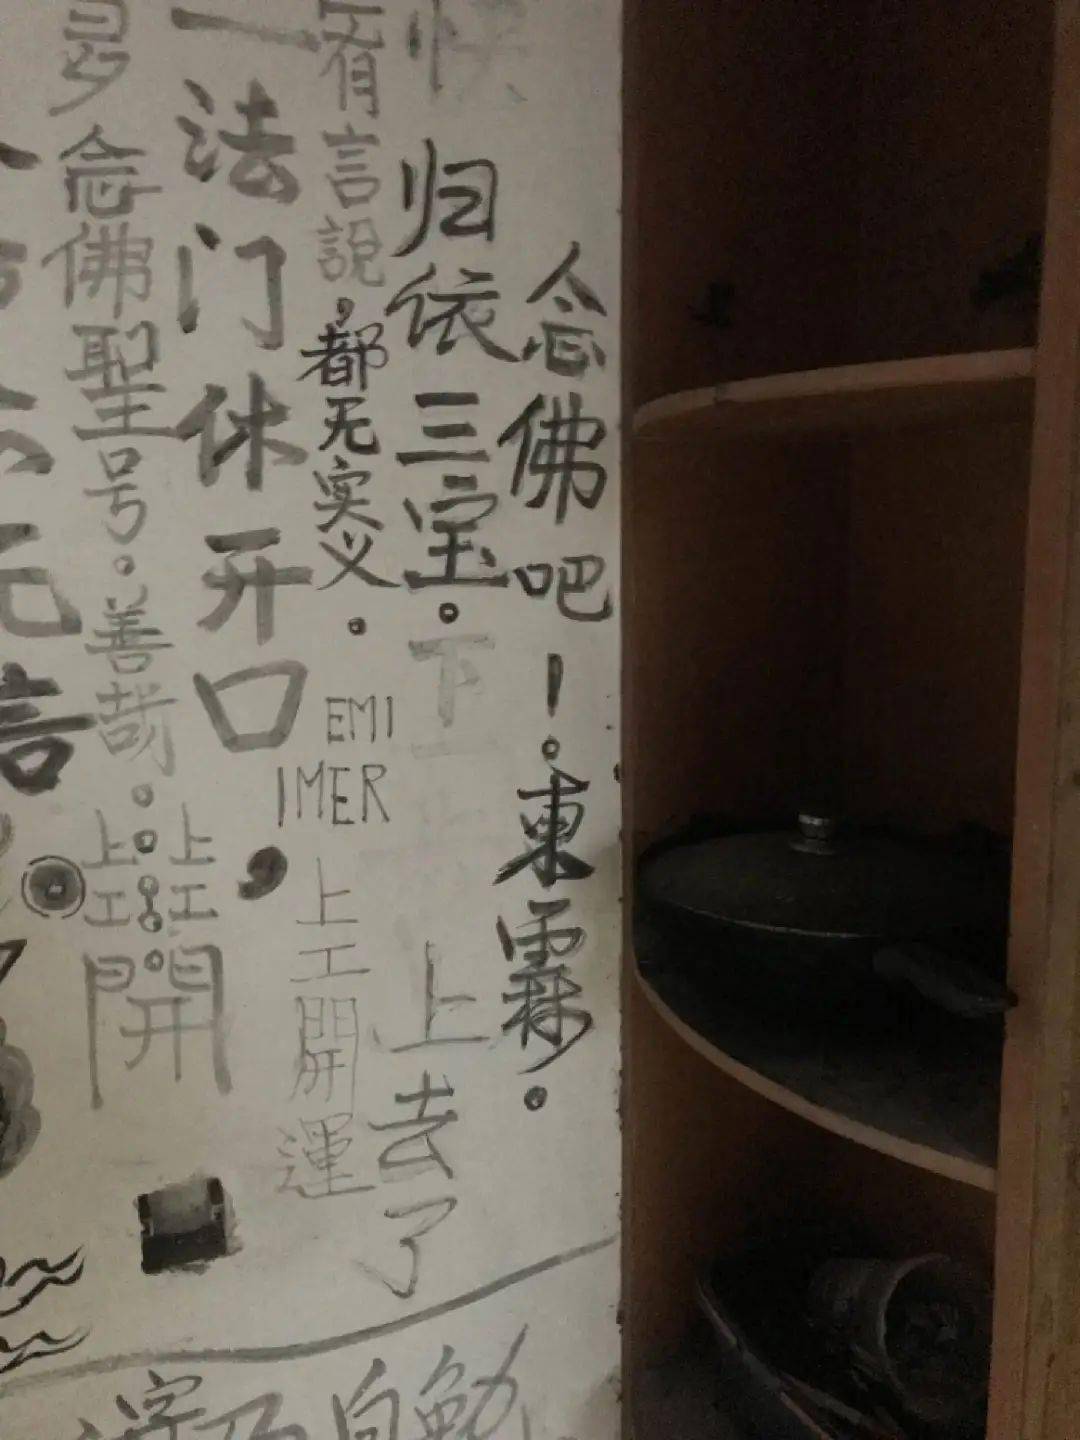 念佛吧！。東霖。
快归依三宝。下
上去了
有言說，都无实义。
EMI
IMER
上工開運
一法门休开口，
多念佛聖号。善哉。
上工
上工
開
言
自勉